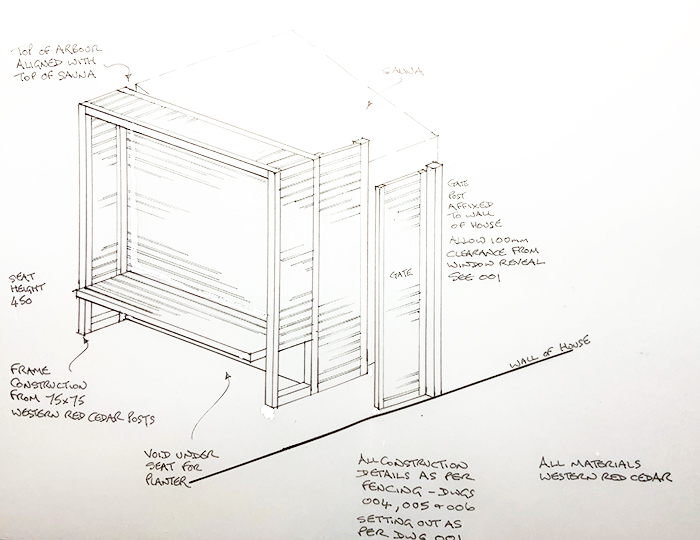 TOP OF ARBOUR
ALIGNED WITH
TOP OF SAUNA
SAUNA
GATE
POST
AFFIXED
TO WALL
OF HOUSE
ALLOW 100mm
CLEARANCE FROM
WINDOW REVEAL
SEE 001
GATE
SEAT
HEIGHT
450
FRAME
CONSTRUCTION
FROM 75x75
WESTERN RED CEDAR POSTS
WALL OF HOUSE
VOID UNDER
SEAT FOR
PLANTER
ALL CONSTRUCTION
DETAILS AS PER
FENCING - DWGS
004, 005 + 006
SETTING OUT AS
PER DWG 001
ALL MATERIALS
WESTERN RED CEDAR